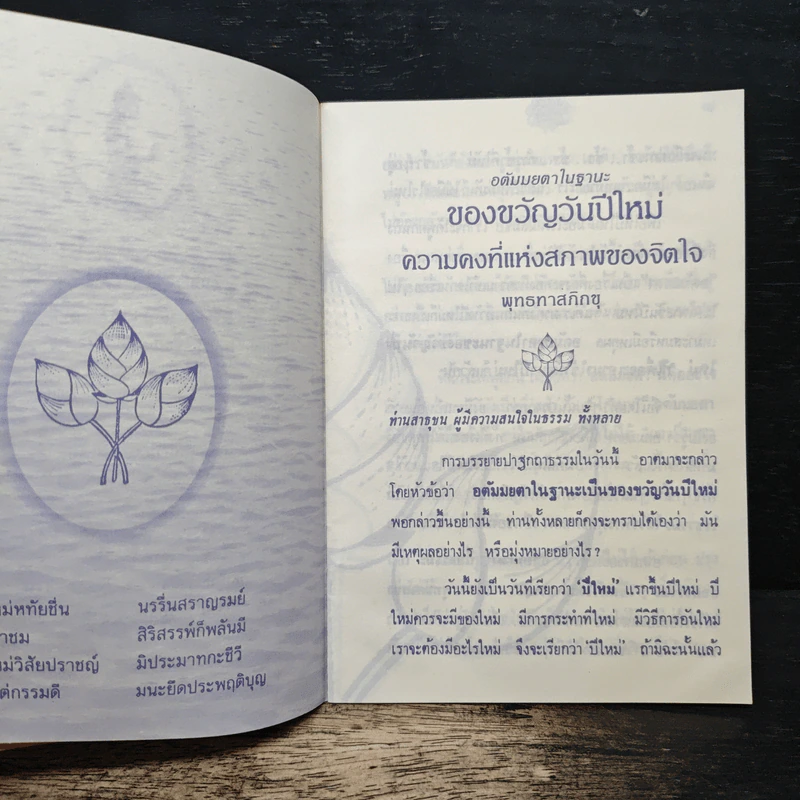 ม่หทัยชื่น นรรื่นสราญรมย์
าชม สิริสรรพ์ก็พลันมี
ม่วิสัยปราชญ์ มิประมาทกะชีวี
ต่กรรมดี มนะยึดประพฤติบุญ
อตัมมยตาในฐานะ
ของขวัญวันปีใหม่
ความคงที่แห่งสภาพของจิตใจ
พุทธทาสภิกขุ
ท่านสาธุชน ผู้มีความสนใจในธรรม ทั้งหลาย
การบรรยายปาฐกถาธรรมในวันนี้ อาตมาจะกล่าว
โดยหัวข้อว่า อตัมมยตาในฐานะเป็นของขวัญวันปีใหม่
พอกล่าวขึ้นอย่างนี้ ท่านทั้งหลายก็คงจะทราบได้เองว่า มัน
มีเหตุผลอย่างไร หรือมุ่งหมายอย่างไร?
วันนี้ยังเป็นวันที่เรียกว่า 'ปีใหม่' แรกขึ้นปีใหม่ ปี
ใหม่ควรจะมีของใหม่ มีการกระทำที่ใหม่ มีวิธีการอันใหม่
เราจะต้องมีอะไรใหม่ จึงจะเรียกว่า 'ปีใหม่' ถ้ามิฉะนั้นแล้ว